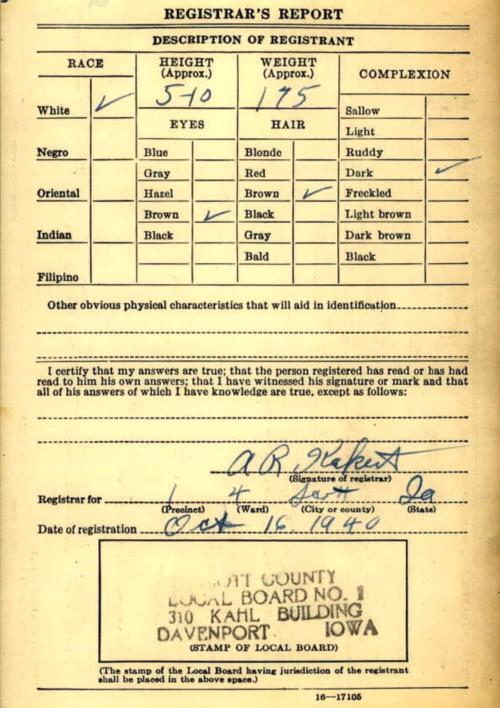 REGISTRAR'S REPORT
DESCRIPTION OF REGISTRANT
RACE
HEIGHT
(Approx.)
WEIGHT
(Approx.)
COMPLEXION
5-10
175
White ✓
Sallow
EYES
HAIR
Light
Negro
Blue
Blonde
Ruddy
Gray
Red
Dark ✓
Oriental
Hazel
Brown ✓
Freckled
Brown ✓
Black
Light brown
Indian
Black
Gray
Dark brown
Bald
Black
Filipino
Other obvious physical characteristics that will aid in identification
I certify that my answers are true; that the person registered has read or has had
read to him his own answers; that I have witnessed his signature or mark and that
all of his answers of which I have knowledge are true, except as follows:
A R Kakert
(Signature of registrar)
Registrar for 1 4 Scott Ia
(Precinct) (Ward) (City or county) (State)
Date of registration Oct 16 1940
OTT COUNTY
LOCAL BOARD NO. 1
310 KAHL BUILDING
DAVENPORT IOWA
(STAMP OF LOCAL BOARD)
(The stamp of the Local Board having jurisdiction of the registrant
shall be placed in the above space.)
16—17105